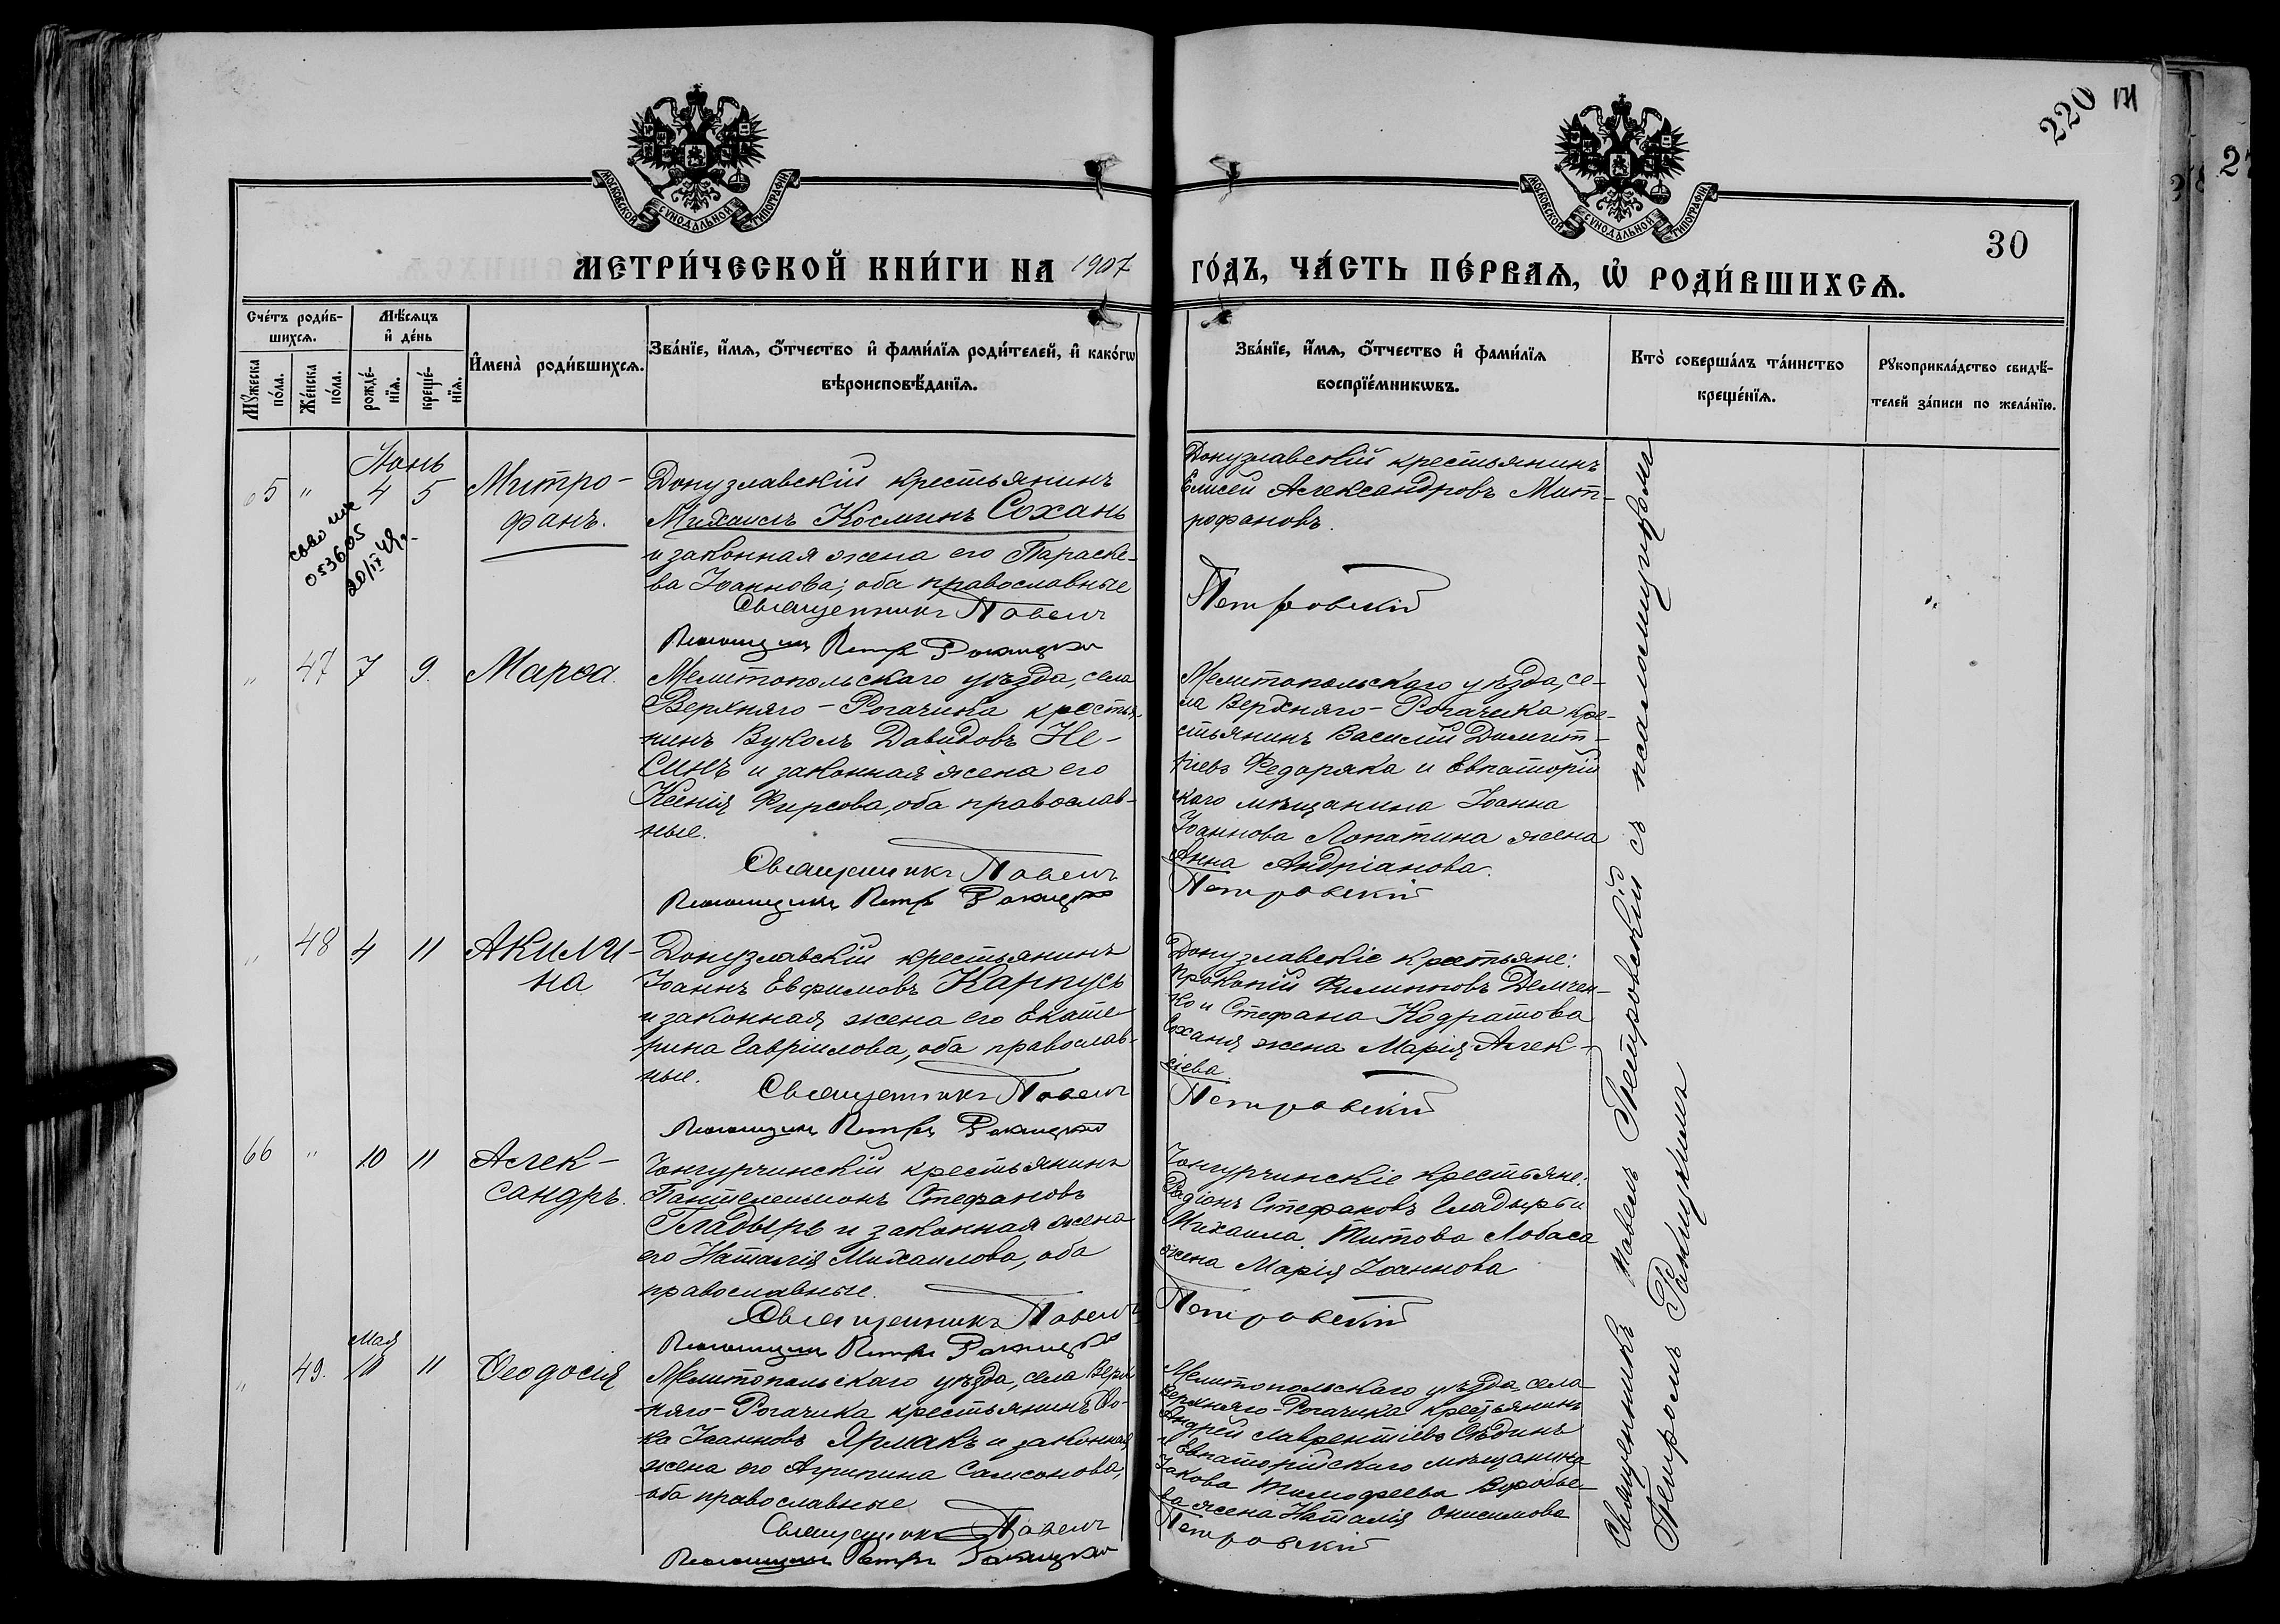 220 171
30
МОСКОВСКОЙ СѴНОДАЛЬНОЙ ТИПОГРАФІИ
МОСКОВСКОЙ СѴНОДАЛЬНОЙ ТИПОГРАФІИ
МЕТРИ́ЧЕСКОЙ КНИ́ГИ НА 1907 ГО́ДЪ, ЧА́СТЬ ПЕ́РВАѦ, Ѡ҆ РОДИ́ВШИХСѦ.
Сче́тъ роди́в-
шихсѧ.
Мꙋ́жеска по́ла.
Же́нска по́ла.
Мѣ́сѧцъ и҆ де́нь
рожде́-нїѧ.
креще́-нїѧ.
И҆мена̀ роди́вшихсѧ.
Зва́нїе, и҆́мѧ, ѻ҆́тчество и҆ фами́лїѧ роди́телей, и҆ како́гѡ
вѣроисповѣ́данїѧ.
Зва́нїе, и҆́мѧ, ѻ҆́тчество и҆ фами́лїѧ
воспрїе́мникѡвъ.
Кто̀ соверша́лъ та́инство
креще́нїѧ.
Рꙋкоприкла́дство свидѣ́-
телей за́писи по жела́нїю.
Іюнь
65 " 4 5
053605
20/IV 49г.
Митро-
фанъ.
Донузлавскій крестьянинъ
Михаилъ Косминъ Сохань
и законная жена его Параске-
ва Іоаннова; оба православные
Священникъ Павелъ
Псаломщикъ Петръ Ракицкій
Донузлавскій крестьянинъ
Елисей Александровъ Мит-
рофановъ.
Петровскій
" 47 7 9.
Марѳа.
Мелитопольскаго уѣзда, села
Верхняго-Рогачика крестья-
нинъ Вуколъ Давидовъ Не-
и законная жена его
Ксенія Фирсова, оба православ-
ные.
Священникъ Павелъ
Псаломщикъ Петръ Ракицкій
Мелитопольскаго уѣзда, се-
ла Верхняго-Рогачика кре-
стьянинъ Василій Димит-
ріевъ Федоряка и Евпаторій
скаго мѣщанина Іоанна
Іоаннова Лопатина жена
Анна Андріанова.
Петровскій
" 48 4 11
Акили-
на
Донузлавскій крестьянинъ
Іоаннъ Евфимовъ Карпусь
и законная жена его Екате
рина Гавріилова, оба православ-
ные.
Священникъ Павелъ
Псаломщикъ Петръ Ракицкій
Донузлавскіе крестьяне:
Прокопій Филипповъ Демчен-
ко и Стефана Кодратова
Соханя жена Марія Алек-
сіева
Петровскій
66 " 10 11
Алек-
сандръ.
Чонгурчинскій крестьянинъ
Пантелеимонъ Стефановъ
Гладырь и законная жена
его Наталія Михаилова, оба
православные.
Священникъ Павелъ
Псаломщикъ Петръ Ракицкій
Чонгурчинскіе крестьяне:
Радіонъ Стефановъ Гладырь и
Михаила Титова Лобаса
жена Марія Іоаннова
Петровскій
Мая
" 49. 10 11
Ѳеодосія
Мелитопольскаго уѣзда, села Верх
няго-Рогачика крестьянинъ Ѳо-
ка Іоанновъ Ярмакъ и законная
жена его Агрипина Самсонова,
оба православные
Священникъ Павелъ
Псаломщикъ Петръ Ракицкій
Мелитопольскаго уѣзда, села
Верхняго-Рогачика крестьянинъ
Андрей Лаврентіевъ Сѣдинъ
и Евпаторійскаго мѣщанина
Іакова Тимофеева Воробье-
ва жена Наталія Онисимова
Петровскій
Священникъ Павелъ Петровскій съ псаломщикомъ
Петромъ Ракицкимъ